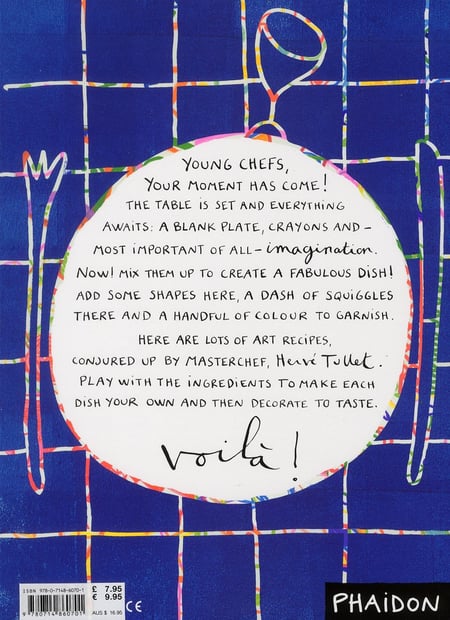 YOUNG CHEFS,
YOUR MOMENT HAS COME!
THE TABLE IS SET AND EVERYTHING
AWAITS: A BLANK PLATE, CRAYONS AND –
MOST IMPORTANT OF ALL – imagination.
NOW! MIX THEM UP TO CREATE A FABULOUS DISH!
ADD SOME SHAPES HERE, A DASH OF SQUIGGLES
THERE AND A HANDFUL OF COLOUR TO GARNISH.
HERE ARE LOTS OF ART RECIPES,
CONJURED UP BY MASTERCHEF, Hervé Tullet.
PLAY WITH THE INGREDIENTS TO MAKE EACH
DISH YOUR OWN AND THEN DECORATE TO TASTE.
voilà!
ISBN 978-0-7148-6070-1
£ 7.95
€ 9.95
AUS $ 16.95
CE
9 780714 860701
PHAIDON